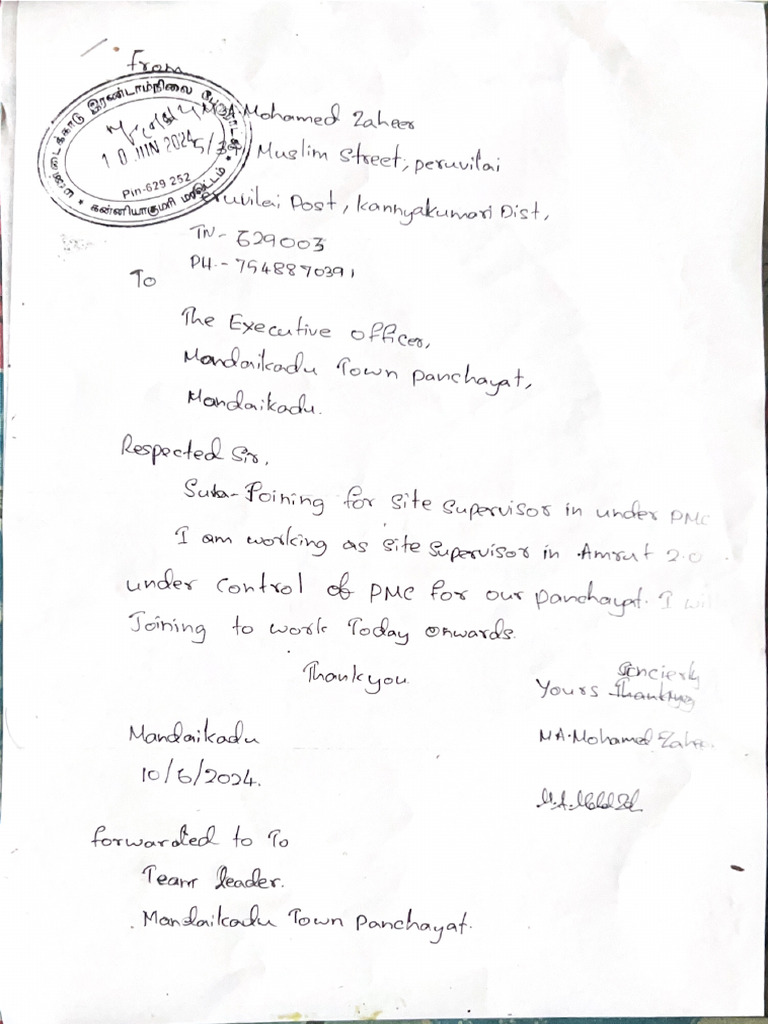 From
M.A.Mohamed Zaheer
Muslim Street, peruvilai
eruvilai Post, Kannyakumari Dist,
TN- 629003
PH.- 7548870391
மண்டைக்காடு இரண்டாம்நிலை
10 JUN 2024
Pin-629 252
* கன்னியாகுமரி மாவட்டம் *
To
The Executive officer,
Mandaikadu Town Panchayat,
Mandaikadu.
Respected Sir,
Sub- Joining for site supervisor in under PMC
I am working as site supervisor in Amrut 2.0
under control of PMC for our panchayat. I
Joining to work Today onwards.
Thankyou.
Yours Sincierly
M.A.Mohamed Zahee
Mandaikadu
10/6/2024.
forwarded to To
Team leader.
Mandaikadu Town Panchayat.